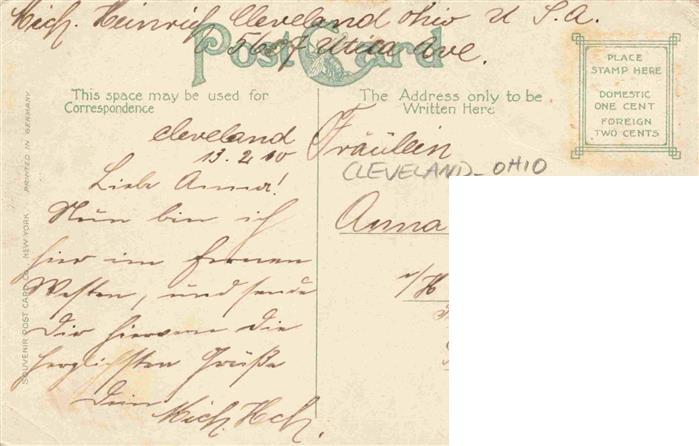 Mich. Heinrich Cleveland Ohio U.S.A.
5607 Utica Ave.
Post Card
This space may be used for
Correspondence
The Address only to be
Written Here
PLACE
STAMP HERE
DOMESTIC
ONE CENT
FOREIGN
TWO CENTS
SOUVENIR POST CARD CO. NEW YORK PRINTED IN GERMANY
Cleveland
13.2.10
Liebe Anna!
Nun bin ich
hier im fernen
Westen, und sende
Dir hiervon die
herzlichsten Grüße
Dein
Mich. Hch.
Fräulein
CLEVELAND - OHIO
Anna